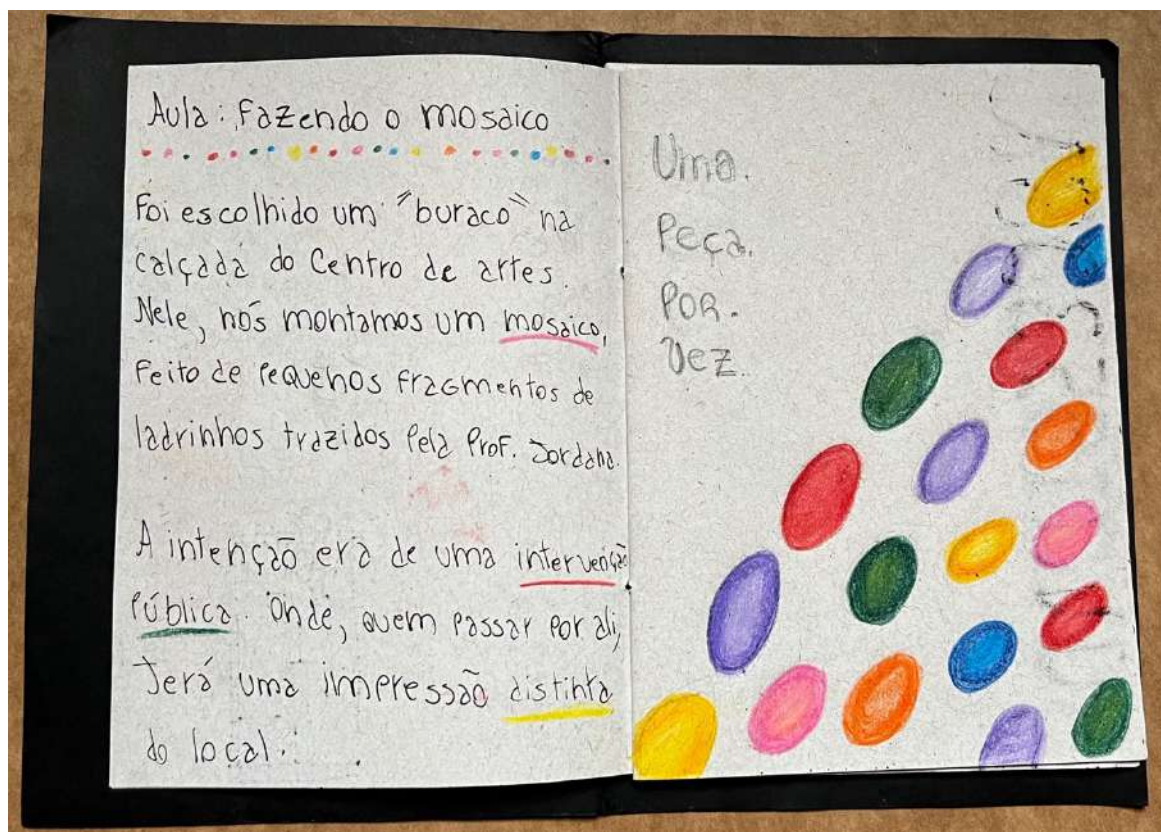 Aula: Fazendo o mosaico
Foi escolhido um "buraco" na
calçada do Centro de artes.
Nele, nós montamos um mosaico,
Feito de pequenos fragmentos de
ladrinhos trazidos pela Prof. Jordana.
A intenção era de uma intervenção
pública. Onde, quem passar por ali,
Terá uma impressão distinta
do local.
Uma.
Peça.
POR.
Vez.